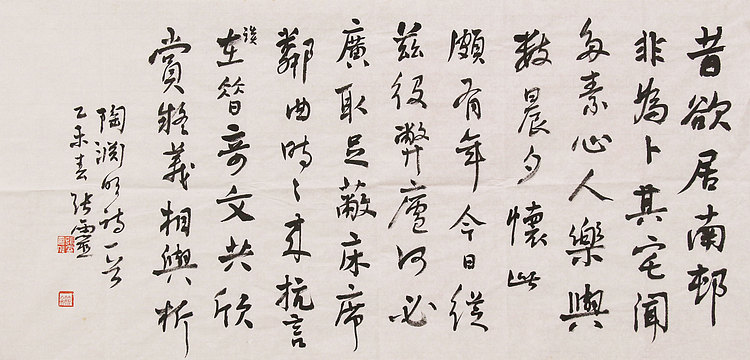 昔欲居南邨
非為卜其宅聞
多素心人樂與
數晨夕懷此
頗有年今日從
茲役弊廬何必
廣取足蔽床席
鄰曲時〻來抗言
談在昔奇文共欣
賞疑義相與析
陶淵明詩一首
乙未春張靈